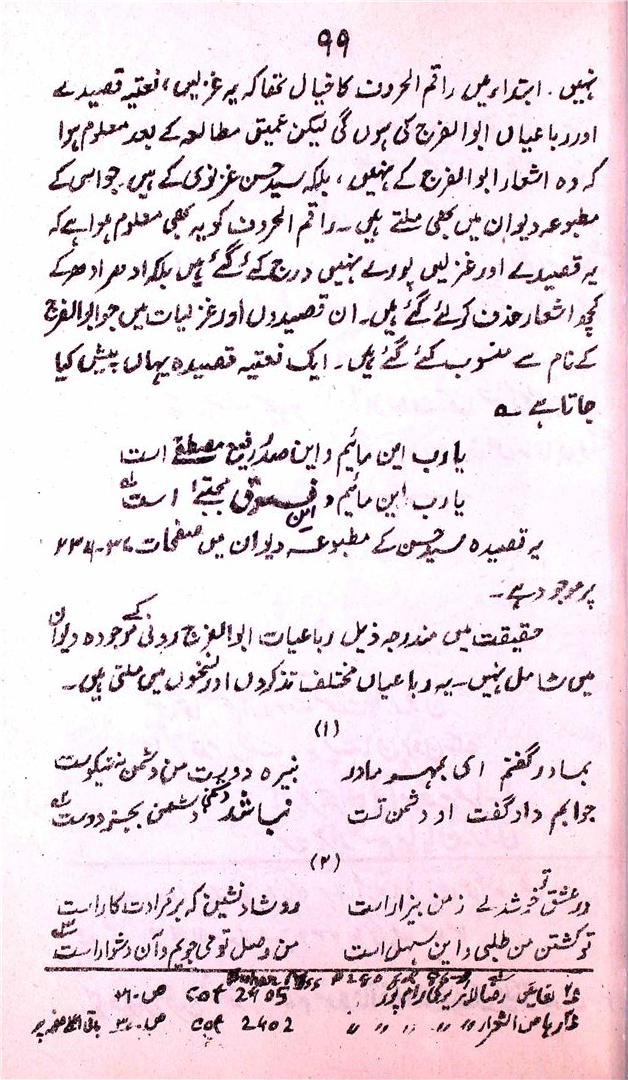 ۹۹
نہیں۔ ابتداء میں راقم الحروف کا خیال تھا کہ یہ غزلیں، نعتیہ قصیدے
اور رباعیاں ابوالفرج کی ہوں گی لیکن عمیق مطالعہ کے بعد معلوم ہوا
کہ وہ اشعار ابوالفرج کے نہیں، بلکہ سید حسن غزنوی کے ہیں جو اسی کے
مطبوعہ دیوان میں بھی ملتے ہیں۔ راقم الحروف کو یہ بھی معلوم ہوا ہے کہ
یہ قصیدے اور غزلیں پورے نہیں درج کئے گئے ہیں بلکہ ادھر ادھر کے
کچھ اشعار حذف کر لئے گئے ہیں۔ ان قصیدوں اور غزلیات میں جو ابوالفرج
کے نام سے منسوب کئے گئے ہیں۔ ایک نعتیہ قصیدہ یہاں پیش کیا
جاتا ہے ؎
یا رب این مائیم و این صدر رفیع مصطفےٰ است
یا رب این مائیم و این فرق مجتبےٰ است
یہ قصیدہ سید حسن کے مطبوعہ دیوان میں صفحات
پر موجود ہے۔
حقیقت میں مندرجہ ذیل رباعیات ابوالفرج رونی کے موجودہ دیوان
میں شامل نہیں۔ یہ رباعیاں مختلف تذکروں اور نسخوں میں ملتی ہیں۔
(۱)
بمادر گفتم ای بمہر مادر نبیرہ دوست من دشمن نہ نیکوست
جوابم داد گفت او دشمن تست نباشد دشمن بجز دوست
(۲)
در عشق تو خرشدلے ز من بیزار است رو شاد نشین کہ بر مرادت کار است
تو کشتن من طلبی و این سہل است من وصل تو می جویم و آن دشوار است
رضا لائبریری رام پور cat 2405 ص۔
cat 2402 ص۔ باقی اگلے صفحہ پر